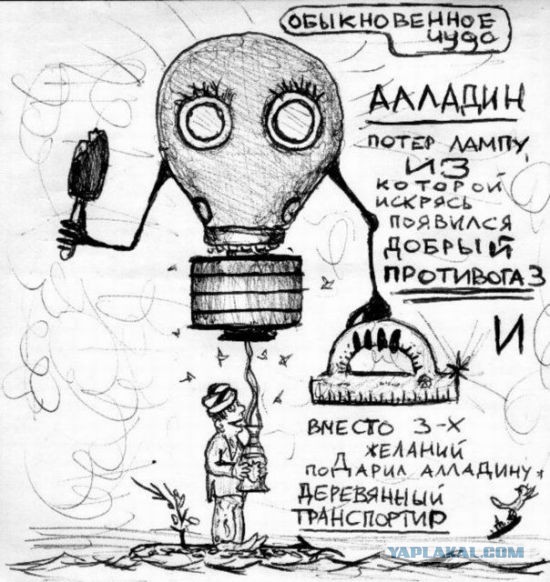 ОБЫКНОВЕННОЕ
ЧУДО
АЛЛАДИН
ПОТЕР ЛАМПУ,
ИЗ
КОТОРОЙ
ИСКРЯСЬ
ПОЯВИЛСЯ
ДОБРЫЙ
ПРОТИВОГАЗ
И
ВМЕСТО 3-Х
ЖЕЛАНИЙ
ПОДАРИЛ АЛЛАДИНУ
ДЕРЕВЯННЫЙ
ТРАНСПОРТИР
YAPLAKAL.COM